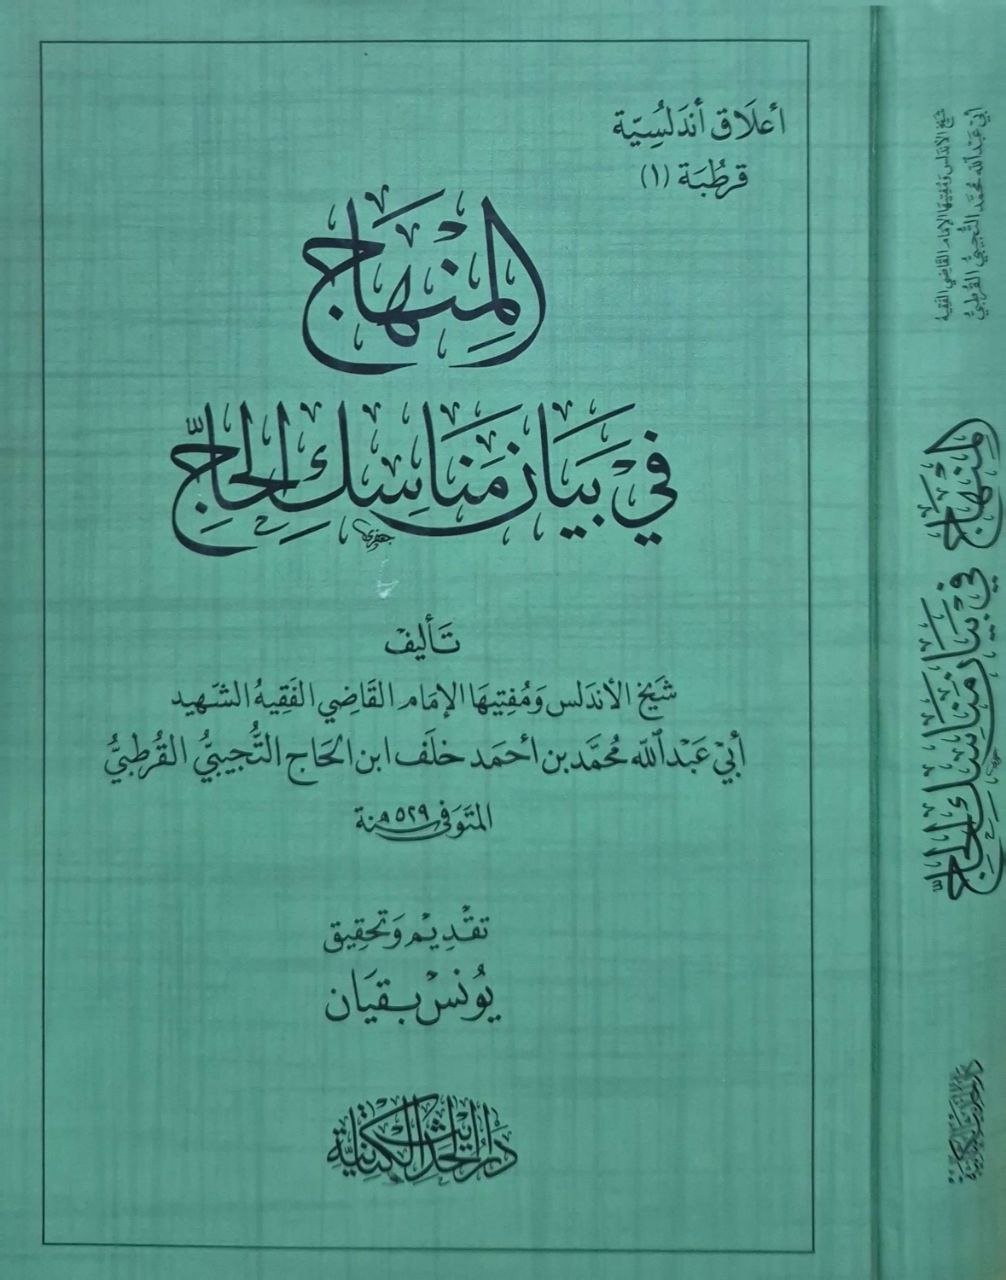 أعلَاق أندَلُسِيّة
قرطُبَة (١)
المِنْهَاج
فيْ بَيَان مَنَاسِكِ الحَاجِّ
تَأليفْ
شَيخ الأندَلس وَمُفتِيهَا الإمَام القَاضِي الفَقِيهُ الشَهِيد
أبيْ عَبْد اللّه مُحمَّد بن أحمَد خلَف ابن الحَاج التُّجيبيُّ القُرطبيُّ
المتَوَفى ٥٢٩ هنة
تقْدِيْم وَتحقِيق
يُونسْ بقيَان
دَارُ الحَديث الكتانية
شَيخ الأندَلس وَمُفتِيهَا الإمَام القَاضي الفَقِيهُ
أبيْ عَبْد اللّه مُحمَّد التُّجيبيُّ القُرطبيُّ
المِنْهَاج فيْ بَيَان مَنَاسِكِ الحَاجِّ